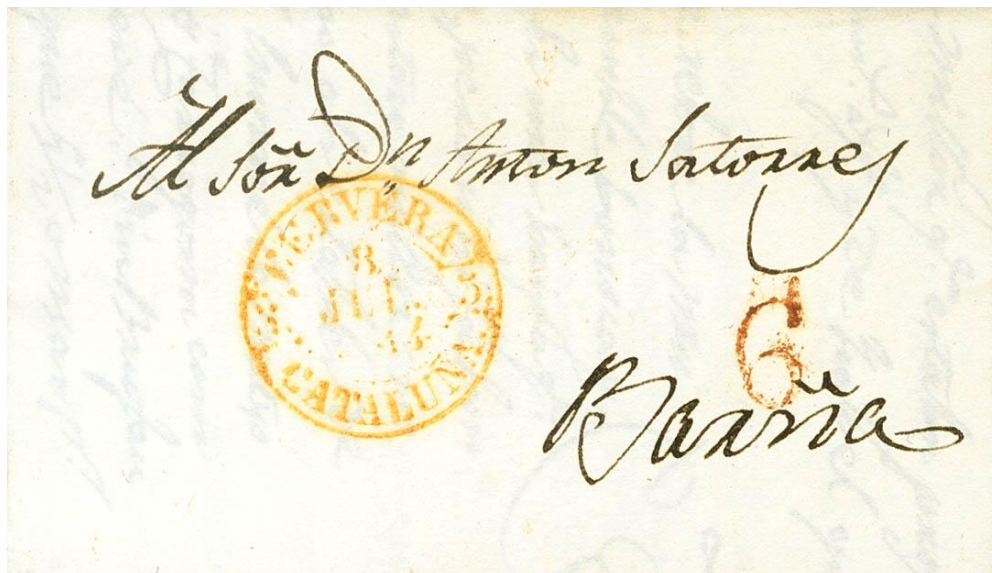 Al Sôr Dn Anton Satorres
CERVERA 5
8
JUL.
44
CATALUÑA
6
Barña